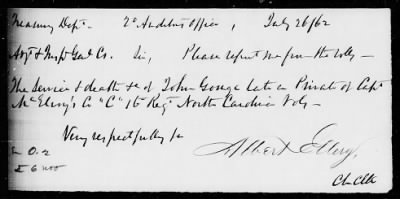 Treasury Dept. 2d Auditor's Office, July 26/62
Adjt & Insp Genl Cs. Sir, Please report me from the Rolls —
The Service & death &c of John Gouge late a Private of Capt
McElroy's Co "C" 16 Regt North Carolina Vols —
Very respectfully &c
Albert Ellery,
O. 2
Ch Clk